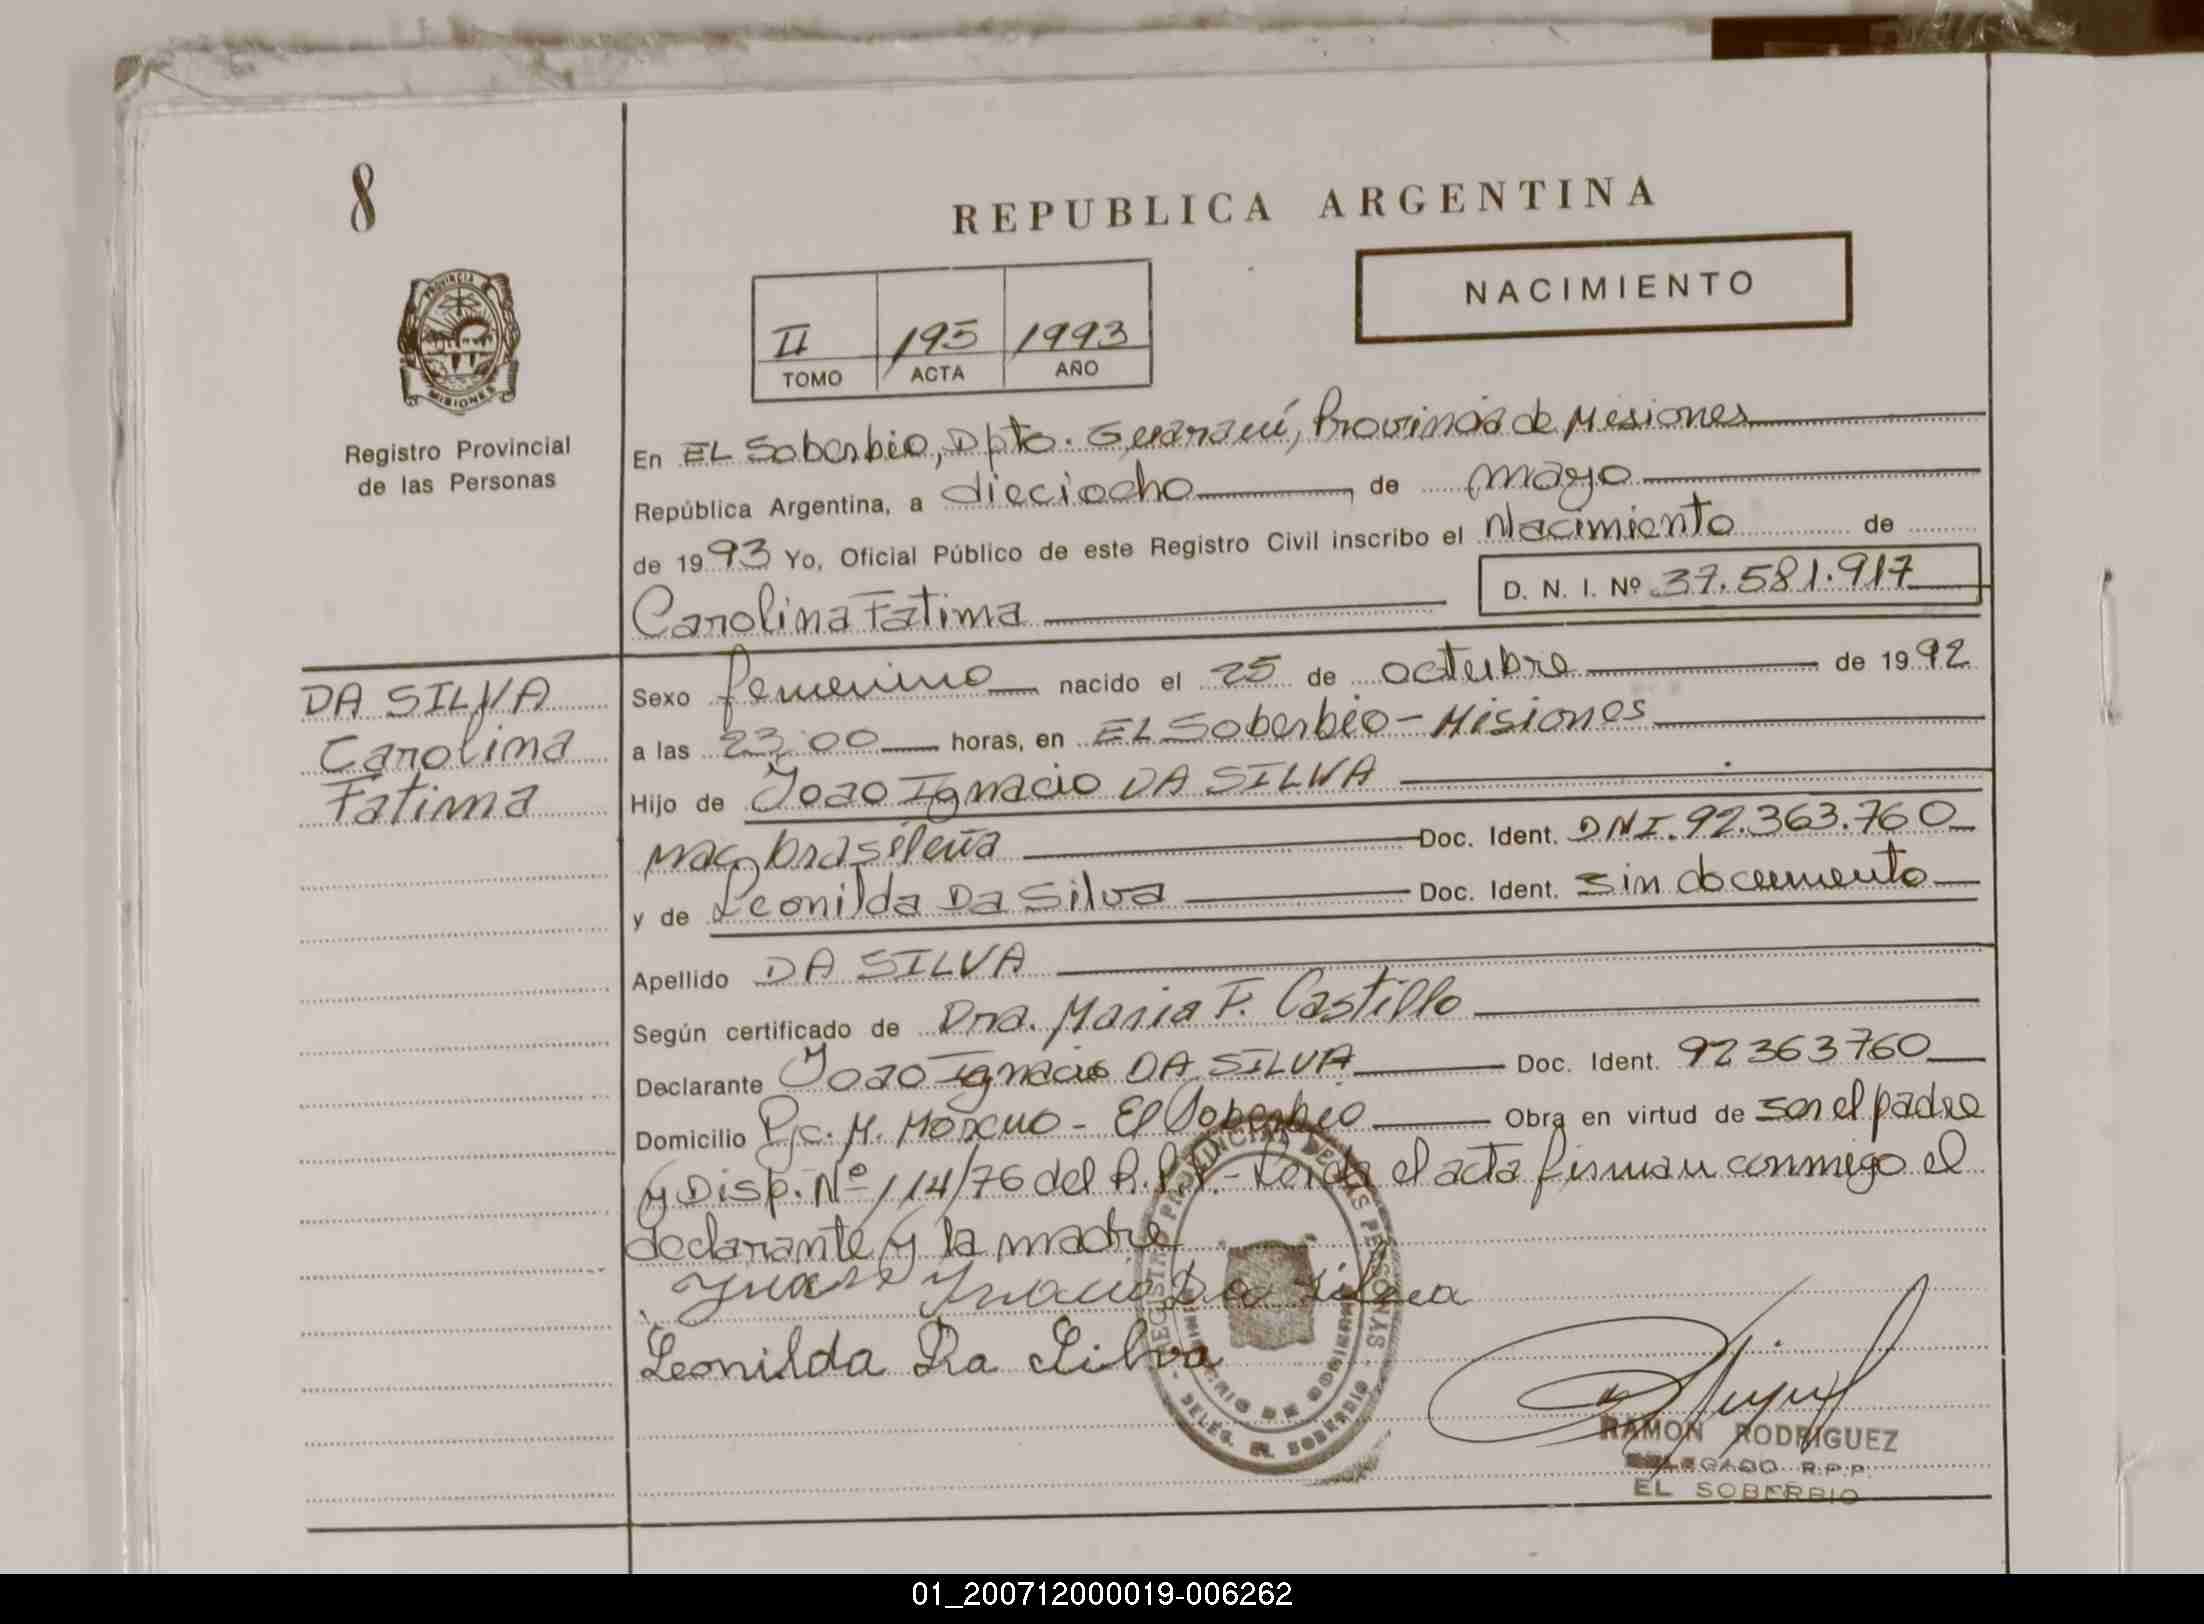 8
REPUBLICA ARGENTINA
NACIMIENTO
II 195 1993
TOMO ACTA AÑO
PROVINCIA
MISIONES
Registro Provincial
de las Personas
En EL Soberbio, Dpto. Guaraní, Provincia de Misiones
República Argentina, a dieciocho, de mayo
de 1993 Yo, Oficial Público de este Registro Civil inscribo el Nacimiento de
Carolina Fatima D. N. I. Nº 37.581.917
DA SILVA
Carolina
Fatima
Sexo femenino nacido el 25 de octubre de 1992
a las 23:00 horas, en EL Soberbio - Misiones
Hijo de Joao Ignacio DA SILVA
nac. brasileña Doc. Ident. DNI. 92.363.760
y de Leonilda Da Silva Doc. Ident. sin documento
Apellido DA SILVA
Según certificado de Dra. Maria F. Castillo
Declarante Joao Ignacio DA SILVA Doc. Ident. 92363760
Domicilio Pje. M. Moreno - El Soberbio Obra en virtud de ser el padre
y Disp. Nº 114/76 del R.P.P. - Leida el acta firman conmigo el
declarante y la madre
Da Silva
Leonilda Da Silva
REGISTRO PROVINCIAL DE LAS PERSONAS
MINISTERIO DE GOBIERNO
DELEG. EL SOBERBIO
RAMON RODRIGUEZ
DELEGADO R.P.P.
EL SOBERBIO
01_200712000019-006262